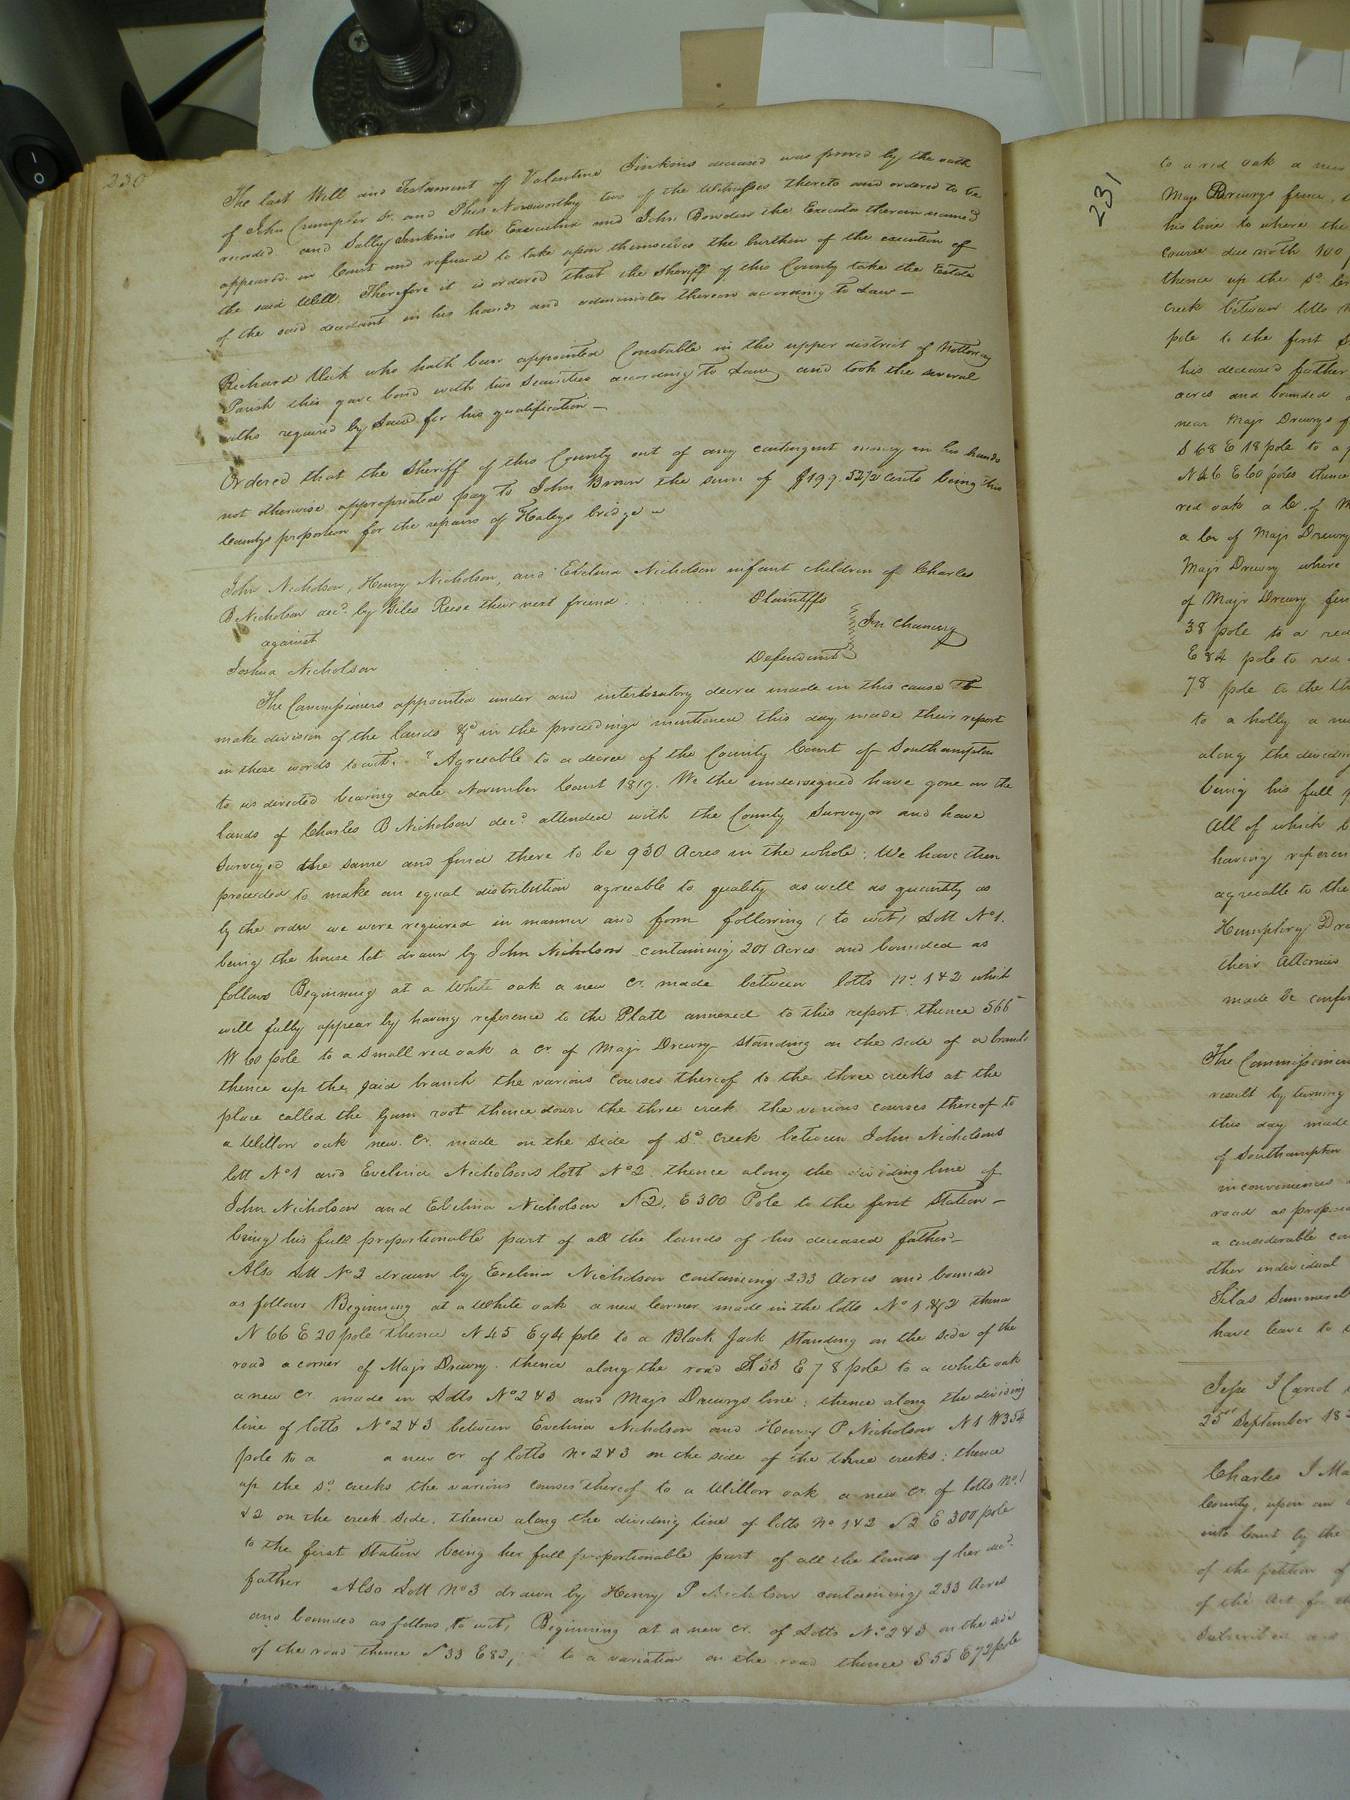 230
The last Will and Testament of Valentine Jenkins deceased was proved by the oath
of John Crumpler Sr. and Norsworthy two of the Witnesses thereto and ordered to be
recorded. and Sally Jenkins the Executrix and John Bowden the Executor therein named
appeared in Court and refused to take upon themselves the burthen of the execution of
the said Will. Therefore it is ordered that the Sheriff of this County take the Estate
of the said decedant in his hands and administer thereon according to Law —
Richard who hath been appointed Constable in the upper district of Nottoway
Parish this gave bond with his Securities according to Law, and took the several
oaths required by Law for his qualification —
Ordered that the Sheriff of this County out of any contingent money in his hands
not otherwise appropriated pay to John Brown the sum of $199.52½ Cents being this
Countys proportion for the repairs of Haleys bridge —
John Nicholson, Henry Nicholson, and Evelina Nicholson infant children of Charles
B Nicholson decd. by Giles Reese their next friend Plaintiffs
In Chancery
against
Joshua Nicholson Defendant
The Commissioners appointed under and interlocutory decree made in this cause to
make division of the lands &c in the proceedings mentioned this day made their report
in these words to wit. "Agreeable to a decree of the County Court of Southampton
to us directed bearing date November Court 1819. We the undersigned have gone on the
lands of Charles B Nicholson decd. attended with the County Surveyor and have
Surveyed the same and find there to be 930 Acres in the whole: We have then
proceeded to make an equal distribution agreeable to quality as well as quantity as
by the order we were required in manner and form following (to wit) Lott No 1.
being the house lot drawn by John Nicholson containing 201 Acres and bounded as
follows Beginning at a White oak a new cr. made between lotts No. 1 & 2 which
will fully appear by having reference to the Platt annexed to this report. thence S66
W 60 pole to a small red oak a cr. of Majr Drewry standing on the side of a branch
thence up the said branch the various courses thereof to the three creeks at the
place called the Gum root thence down the three creek the various courses thereof to
a Willow oak new. Cr. made on the side of sd. creek between John Nicholsons
lott No 1 and Evelina Nicholsons lott No 2. thence along the dividing line of
John Nicholson and Evelina Nicholson S2, E 300 Pole to the first Station —
being his full proportionable part of all the lands of his deceased father —
Also Lott No 2 drawn by Evelina Nicholson containing 233 Acres and bounded
as follows Beginning at a White oak a new Corner made in the lotts No 1 & 2 thence
N 66 E 20 pole thence N 45 E 94 pole to a Black Jack standing on the side of the
road a corner of Majr Drewry. thence along the road S 33 E 78 pole to a white oak
a new cr. made in Lotts No 2 & 3 and Majr Drewrys line: thence along the dividing
line of lotts No 2 & 3 between Evelina Nicholson and Henry P Nicholson N 1 W 354
pole to a a new cr of lotts No 2 & 3 on the side of the three creeks: thence
up the sd. creeks the various courses thereof to a Willow oak a new Cr. of lotts No. 1
& 2 on the creek side. thence along the dividing line of lotts No 1 & 2 S2 E 300 pole
to the first Station being her full proportionable part of all the lands of her decd.
father Also Lott No 3 drawn by Henry P Nicholson containing 233 Acres
and bounded as follows, to wit, Beginning at a new cr. of Lotts No. 2 & 3 on the side
of the road thence S 33 E 82, to a variation on the road thence S 55 E 72 pole
231
to a red oak a new
Majr Drewrys fence,
his line to where the
course due north 100
thence up the sd.
creek between lotts
pole to the first
his deceased father
acres and bounded
near Majr Drewrys
S 68 E 18 pole to a
N 46 E 60 poles thence
red oak a Cr. of
a Cr of Majr Drewry
Majr Drewry where
of Majr Drewry
38 pole to a red
E 84 pole to red
78 pole to the
to a holly a
along the dividing
being his full
All of which
having
agreeable to the
Humphry
their Attornies
made be
The Commissioners
result by turning
this day made
of Southampton
inconveniences
road as proposed
a considerable
other individual
Silas Summerell
have leave to
25th September
Charles J
County, upon an
into Court by the
of the petition of
of the Act for